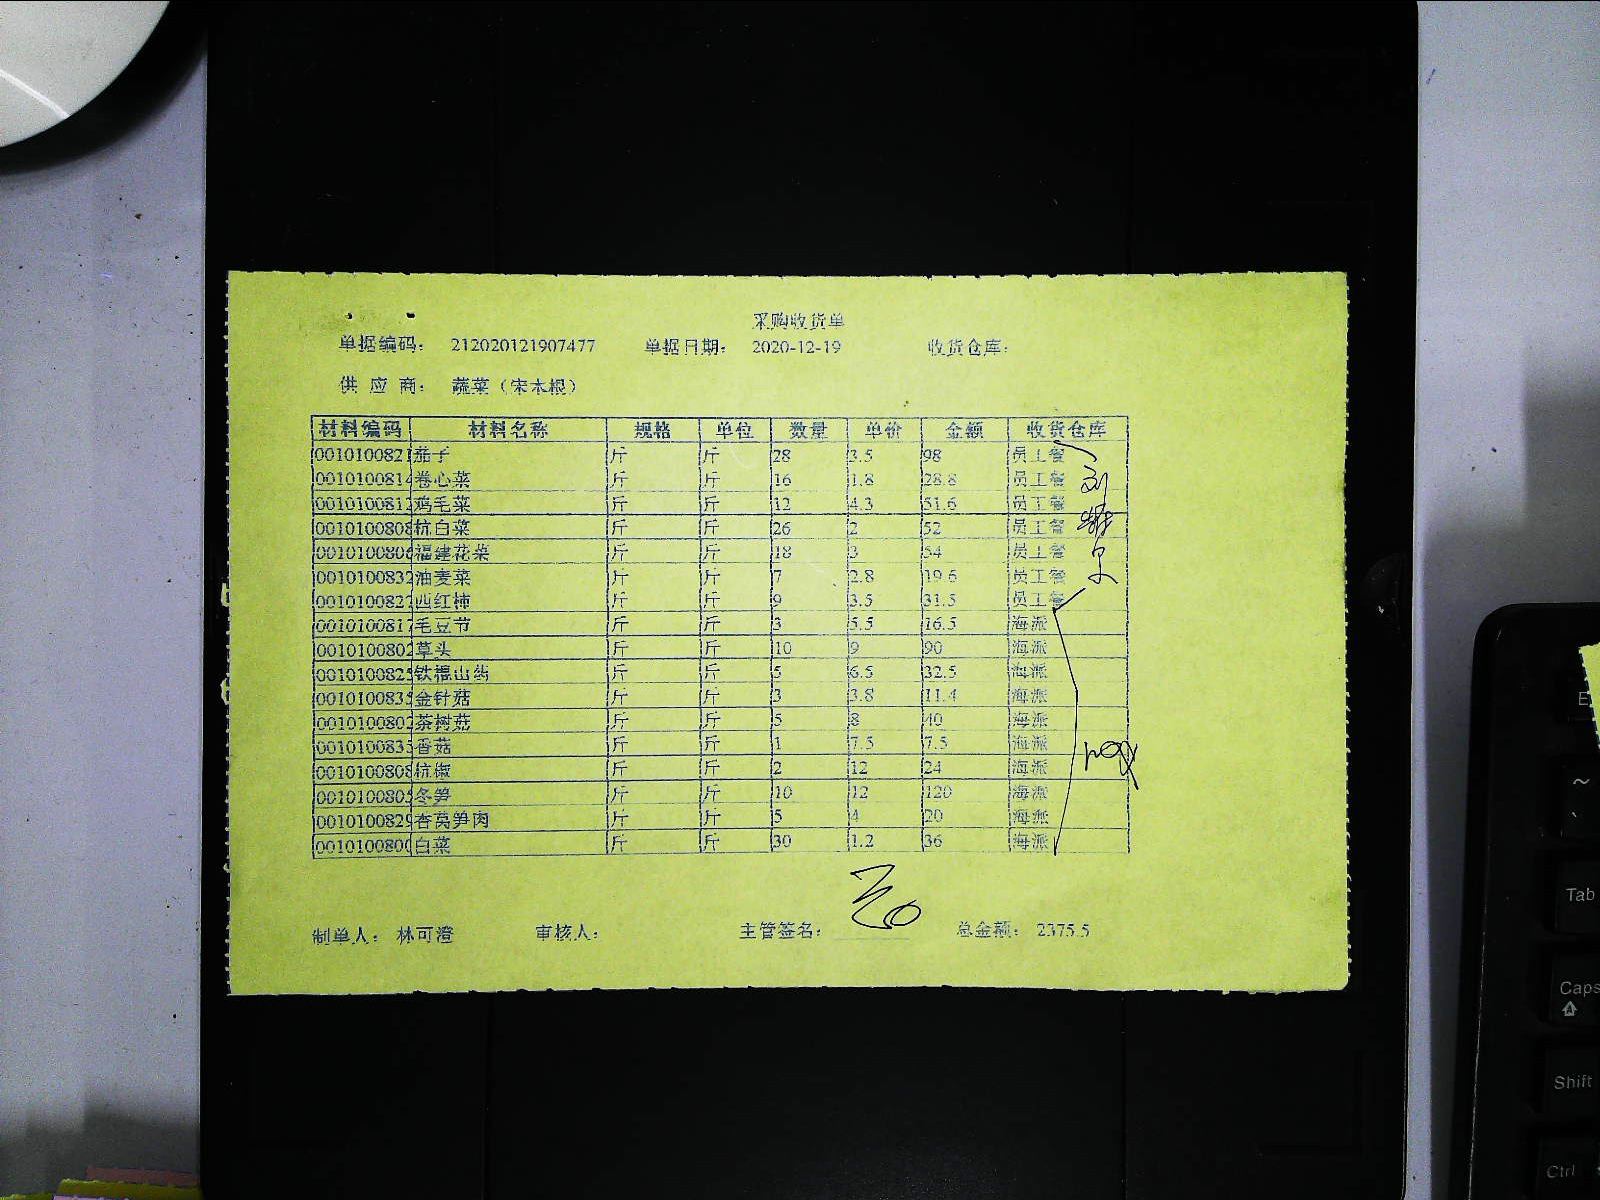 采购收货单
单据编码： 212020121907477 单据日期： 2020-12-19 收货仓库：
供 应 商： 蔬菜（宋本根）
材料编码 材料名称 规格 单位 数量 单价 金额 收货仓库
0010100821 茄子 斤 斤 28 3.5 98 员工餐
001010081 卷心菜 斤 斤 16 1.8 28.8 员工餐
001010081 鸡毛菜 斤 斤 12 4.3 51.6 员工餐
001010080 杭白菜 斤 斤 26 2 52 员工餐
001010080 福建花菜 斤 斤 18 3 54 员工餐
0010100832 油麦菜 斤 斤 7 2.8 19.6 员工餐
001010082 西红柿 斤 斤 9 3.5 31.5 员工餐
001010081 毛豆节 斤 斤 3 5.5 16.5 海派
0010100802 草头 斤 斤 10 9 90 海派
001010082 铁棍山药 斤 斤 5 6.5 32.5 海派
001010083 金针菇 斤 斤 3 3.8 11.4 海派
0010100802 茶树菇 斤 斤 5 8 40 海派
001010083 香菇 斤 斤 1 7.5 7.5 海派
001010080 杭椒 斤 斤 2 12 24 海派
001010080 冬笋 斤 斤 10 12 120 海派
001010082 香莴笋肉 斤 斤 5 4 20 海派
001010080 白菜 斤 斤 30 1.2 36 海派
制单人： 林可澄 审核人： 主管签名： 总金额： 2375.5
~
Tab
Caps
Shift
Ctrl